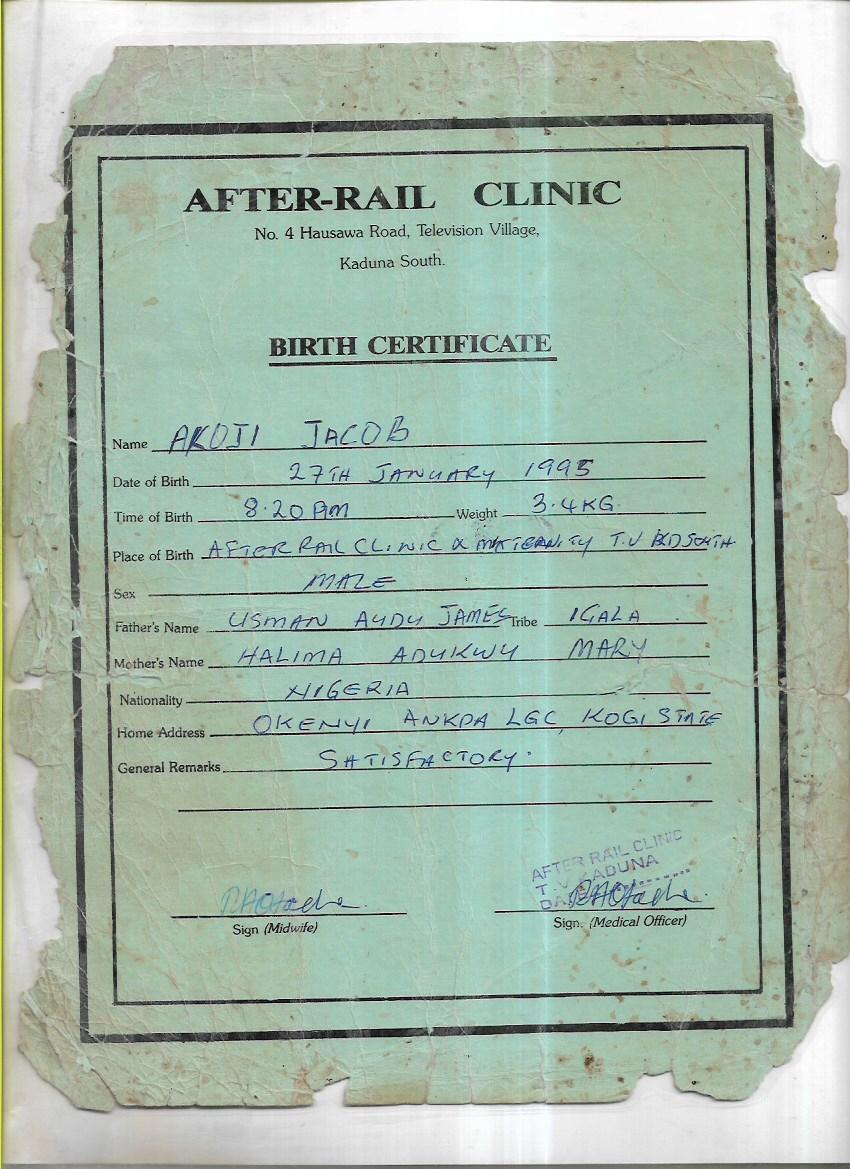 AFTER-RAIL CLINIC
No. 4 Hausawa Road, Television Village,
Kaduna South.
BIRTH CERTIFICATE
Name AKOJI JACOB
Date of Birth 27TH JANUARY 1995
Time of Birth 8.20 PM Weight 3.4KG.
Place of Birth AFTER RAIL CLINIC & MATERNITY T.V KD SOUTH
Sex MALE
Father's Name USMAN AUDU JAMES Tribe IGALA
Mother's Name HALIMA ADUKWU MARY
Nationality NIGERIA
Home Address OKENYI ANKPA LGC, KOGI STATE
General Remarks SATISFACTORY.
AFTER RAIL CLINIC
T.V KADUNA
Sign (Midwife) Sign. (Medical Officer)